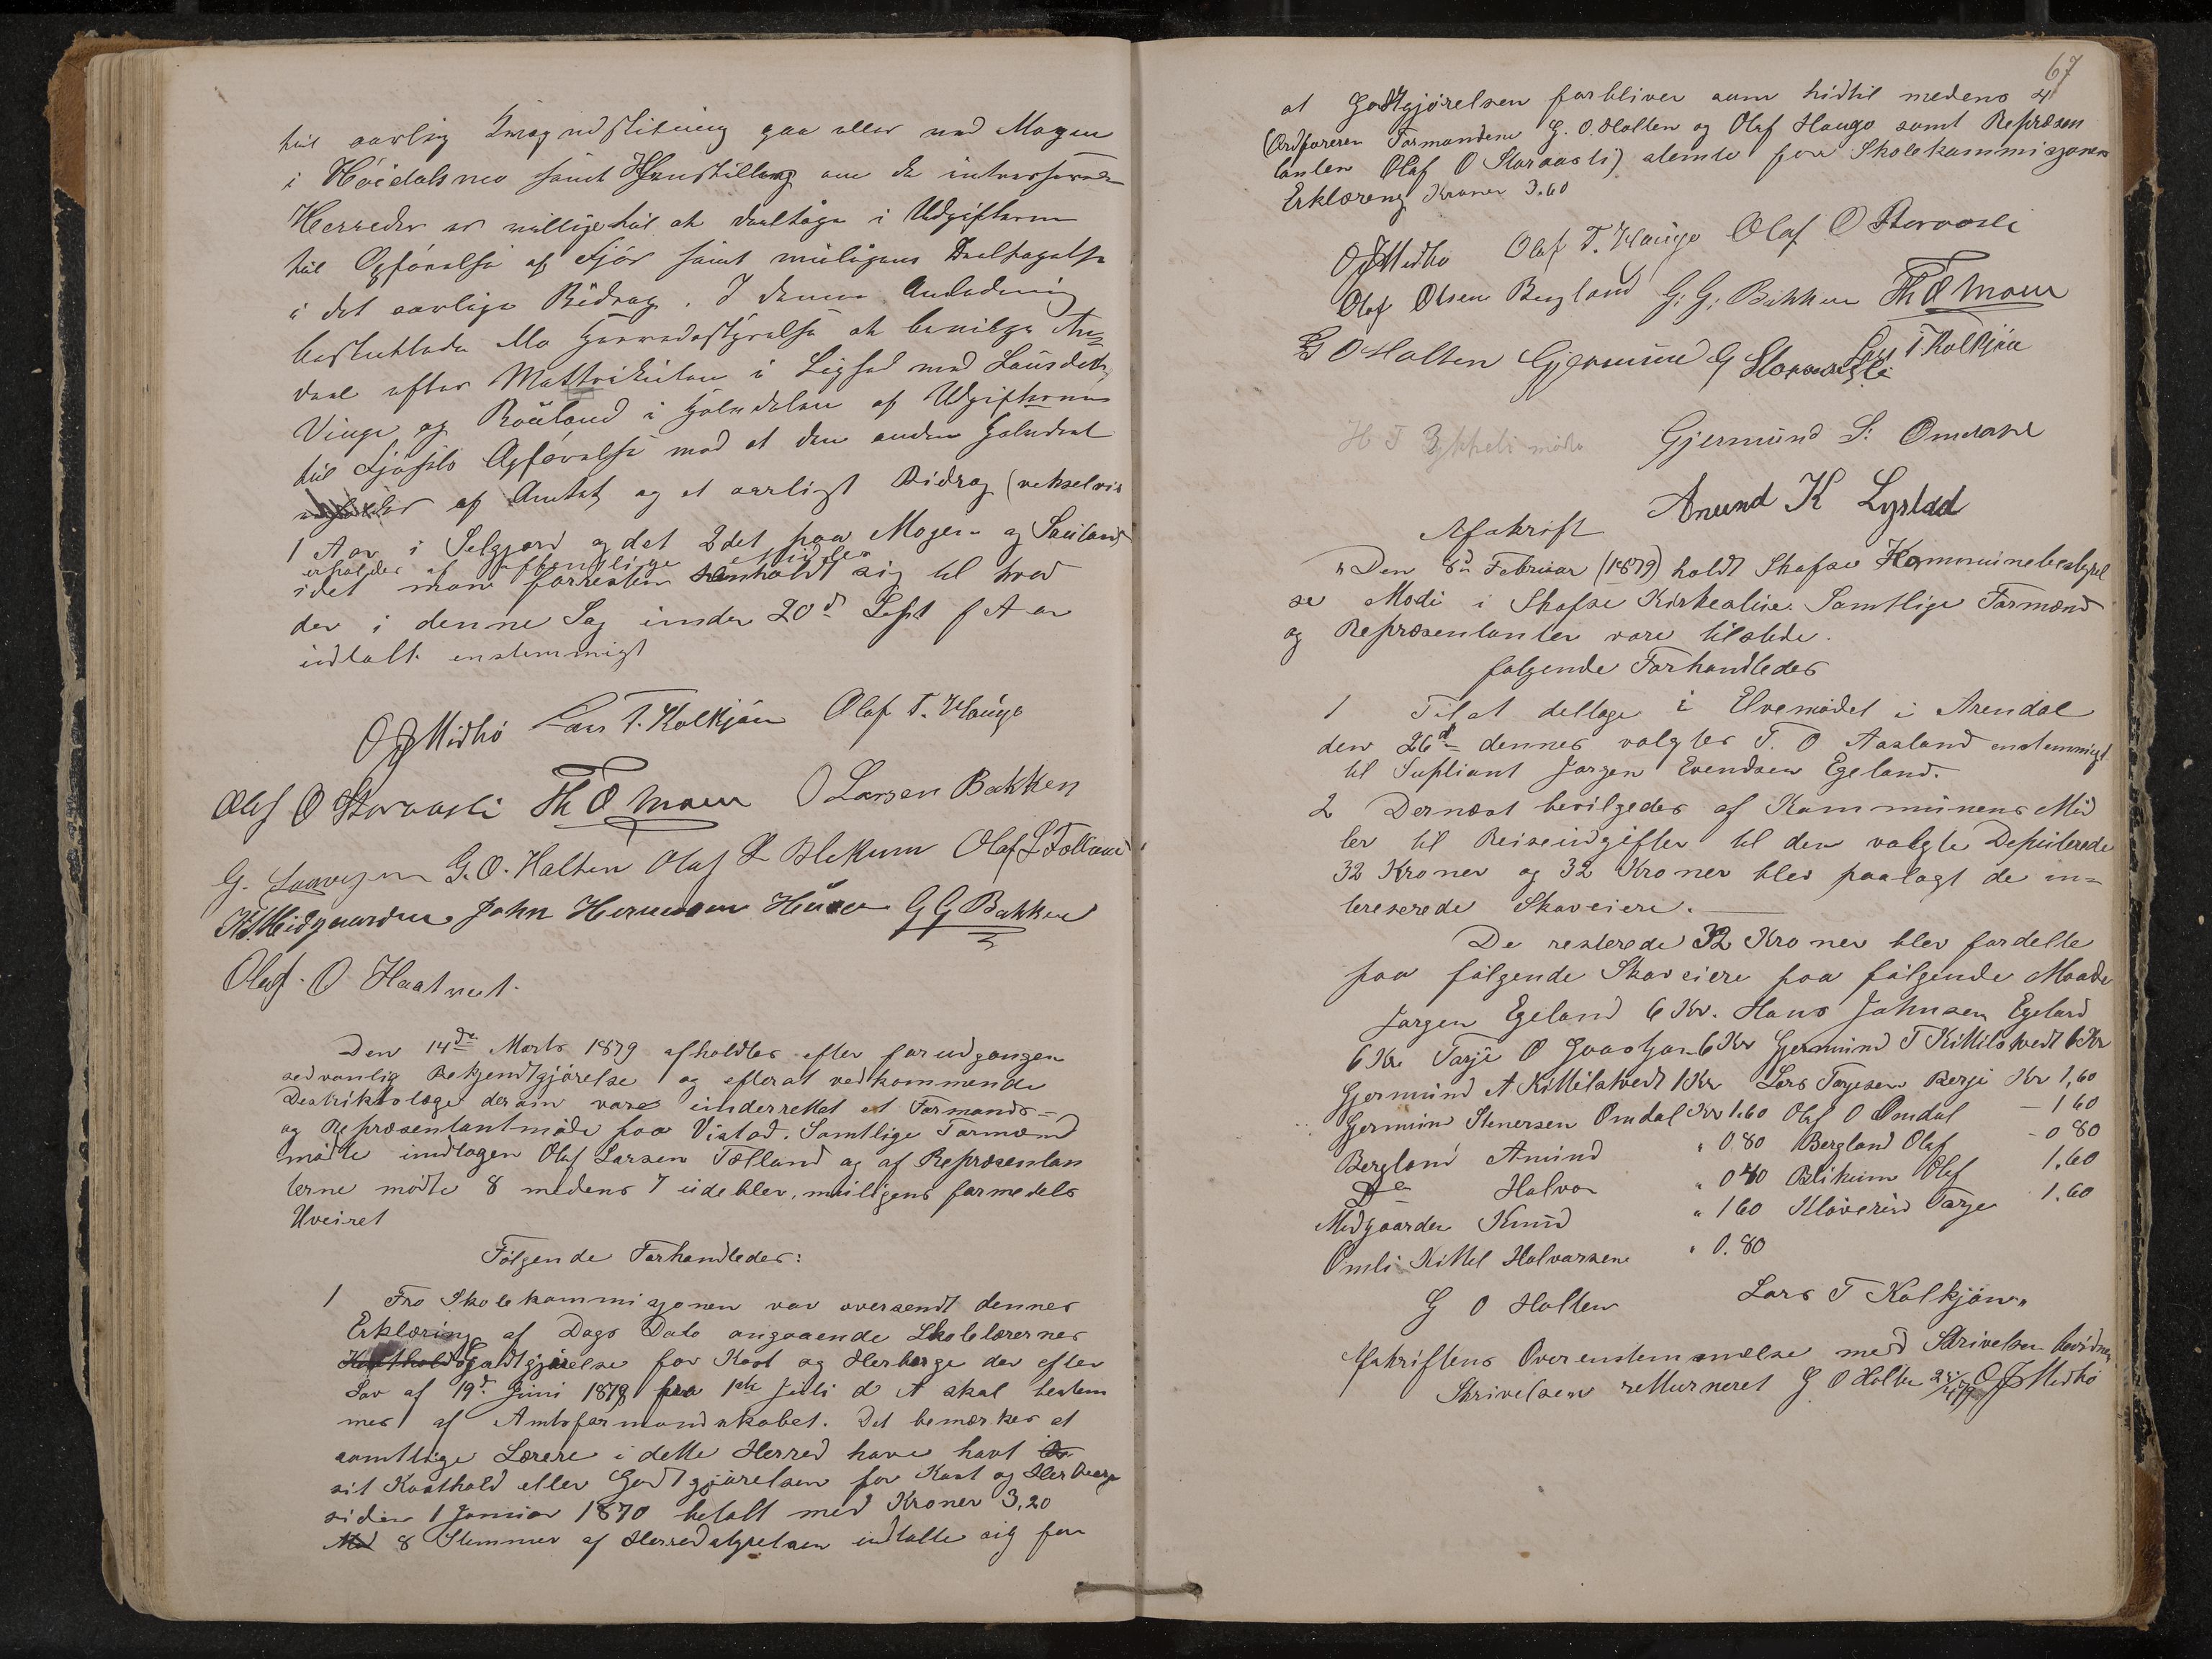 til aarlig
i Höidalsmo samt Henstilling om de interesserede
Herreder er villige til at deeltage i Udgifterne
til Opförelse af Fjös samt muligens Deeltagelse
i det aarlige Bidrag. I denne Anledning
besluttede Mo Herredsstyrelse at bevilge An=
deel efter Mattrikulen i Lighed med Laurdal,
Vinje og Rauland i Halvdelen af Udgifterne
til Fjösets Opförelse mod at den anden Halvdeel
af Amtet og et aarligt Bidrag (vekselvis
1 Aar i Selgjord og det 2det paa Mogen og Sauland
erholdes af offentlige Midler
idet man forresten henholdt sig til hvad
der i denne Sag under 20d Sept f Aar
udtalt enstemmigt
O J Midbö Lars T. Kolkjön Olaf T. Haugo
Olaf O Storaasli Th O Moen O Larsen Bakken
G. G. O. Holten Olaf Blekum Olaf L Tolland
K. Midgaarden John Hermansen G G Bakken
Olaf O Haatveit
Den 14de Marts 1879 afholdtes efter forudgangen
sedvanlig Bekjendtgjörelse og efterat vedkommende
Destriktslæge derom vare underrettet et Formands=
og Repræsentantmöde paa Vistad. Samtlige Formænd
mödte undtagen Olaf Larsen Tolland og af Repræsentan
terne mödte 8 medens 7 udeblev, muligens formedels
Uveiret
Fölgende Forhandledes:
1 Fra Skolekommisjonen var oversendt dennes
Erklæring af Dags Dato angaaende Skolelærernes
Kosthold Godtgjörelse for Kost og Herberge der efter
Lov af 19d Juni 1878 fra 1ste Juli d A skal bestem
mes af Amtsformandskabet. Det bemærkes at
samtlige Lærere i dette Herred have havt
sit Kosthold eller Godtgjörelsen for Kost og Herberge
siden 1 Januar 1870 betalt med Kroner 3,20
Med 8 Stemmer af Herredstyrelsen udtalte sig for
67
at Godtgjörelsen forbliver som hidtil medens 4
(Ordföreren Formændene G. O. Holten og Olaf Haugo samt Repræsen
tanten Olaf O Storaasli) stemte for Skolekommisjonens
Erklæreng Kroner 3.60
O J Midbö Olaf T. Haugo Olaf O Storaasli
Olaf Olsen Bergland G. G. Bakken Th O Moen
G O Holten Gjermund G Storaasli Lars T. Kolkjön
H T möde Gjermund S. Omdahl
Anund K Lystad
Afskrift
"Den 8de Februar (1879) holdt Skafse Kommunebestyrel
se Möde i Skafse Kirkestue. Samtlige Formænd
og Repræsentanter vare tilstede.
følgende Forhandledes
1 Til at deltage i Elvemödet i Arendal
den 26de dennes valgtes T. O Aasland enstemmigt
til Supliant Jørgen Evendsen Egeland.
2 Dernæst bevilgedes af Kommunens Mid
ler til Reiseudgifter til den valgte Deputerede
32 Kroner og 32 Kroner blev paalagt de in=
tereserede Skoveiere.
De resterede 32 Kroner blev fordelte
paa følgende Skoveiere paa følgende Maade
Jørgen Egeland 6 Kr. Hans Johnsen Egeland
6 Kr Tarje O 6 Kr Germund T Kittilstvedt 6 Kr
Gjermund A Kittilstvedt 1 Kr Lars Tarjesen Berge Kr 1,60
Germund Stenersen Omdal Kr 1.60 Olaf O Omdal - 1 60
Bergland Amund " 0.80 Bergland Olaf - 0 80
Do Halvor " 0 40 Blikum Olaf 1.60
Midgaarden Knud " 1 60 Kløverud Tarje 1.60
Omli Kittel Halvorsen " 0.80
G O Holten Lars T Kolkjön"
Afskriftens Overenstemmelse med Skrivelsen bevidnes
Skrivelsen retturneret G O Holten O J Midbö